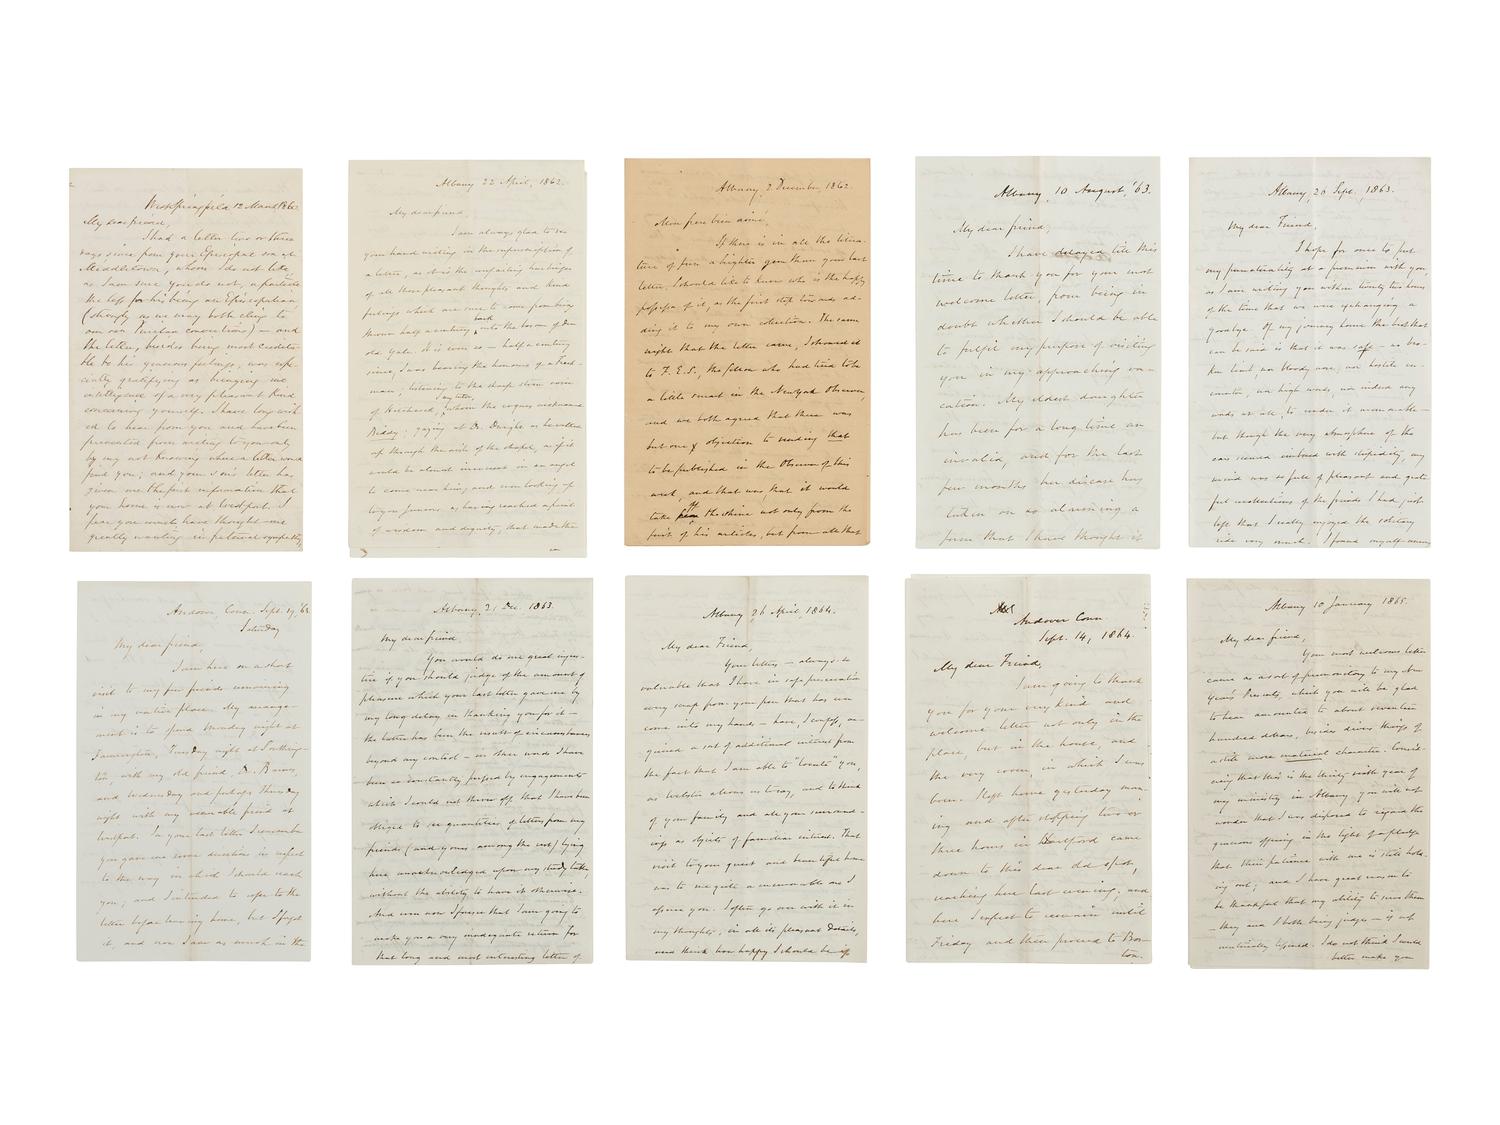 West Springfield 12 March 186
My dear friend,
I had a letter two or three
days since from your Episcopal son at
Middletown, whom I do not like,
as I am sure you do not, a particle
the less for his being an Episcopalian,
(strongly as we may both cling to
our own Puritan convictions) — and
the letter, besides being most credita-
ble to his generous feelings, was espe-
cially gratifying as bringing me
intelligence of a very pleasant kind
concerning yourself. I have long wish
ed to hear from you and have been
prevented from writing to you only
by my not knowing where a letter would
find you; and your son's letter has
given me the first information that
your home is now at Westport. I
fear you must have thought me
greatly wanting in fraternal sympathy
Albany 22 April, 1862.
My dear friend,
I am always glad to see
your hand writing in the superscription of
a letter, as it is the unfailing harbinger
of all those pleasant thoughts and kind
feelings which are sure to come from being
thrown half a century back into the bosom of dear
old Yale. It is even so — half a century
since, I was bearing the honours of a Fresh-
man, listening to the sharp stern voice
of my tutor, whom the rogues nicknamed
gazing at Dr. Dwight as he walked
up through the aisle of the chapel, as if it
would be almost irreverent in an angel
to come near him, and even looking up
to you juniors, as having reached a point
of wisdom and dignity, that made the
Albany, 2 December, 1862.
Mon frere bien aimé,
If there is in all the litera-
ture of fun a brighter gem than your last
letter, I should like to know who is the happy
possessor of it, as the first step towards ad-
ding it to my own collection. The same
night that the letter came, I showed it
to F. E. S., the fellow who had tried to be
a little smart in the New York Observer,
and we both agreed that there was
but one objection to sending that
to be published in the Observer of this
week, and that was, that it would
take off the shine not only from the
first of his articles, but from all that
Albany, 10 August, '63.
My dear friend,
I have delayed till this
time to thank you for your most
welcome letter, from being in
doubt whether I should be able
to fulfil my purpose of visiting
you in my approaching va-
cation. My eldest daughter
has been for a long time an
invalid, and for the last
few months her disease has
taken on so alarming a
form that I have thought it
Albany, 20 Sept., 1863.
My dear Friend,
I hope for once to put
my punctuality at a premium with you,
as I am writing you within twenty two hours
of the time that we were exchanging a
goodbye. Of my journey home the best that
can be said is that it was safe — no bro-
ken limb, no bloody nose, nor hostile en-
counter, no high words, nor indeed any
words at all, to render it memorable —
but though the very atmosphere of the
cars seemed imbued with stupidity, my
mind was so full of pleasant and grate
ful recollections of the friends I had just
left that I really enjoyed the solitary
ride very much. I found myself among
Andover Conn. Sept. 19, '63
Saturday
My dear friend,
I am here on a short
visit to my few friends remaining
in my native place. My arrange-
ment is to spend Monday night at
Farmington, Tuesday night at Southing-
ton, with my old friend, Dr. Barnes,
and Wednesday and perhaps Thursday
night with my venerable friend at
Westport. In your last letter I remember
you gave me some directions in respect
to the way in which I should reach
you; and I intended to refer to the
letter before leaving home, but I forgot
it, and now I am as much in the
Albany, 21 Dec. 1863.
My dear friend,
You would do me great injus-
tice if you should judge of the amount of
pleasure which your last letter gave me by
my long delay in thanking you for it —
the latter has been the result of circumstances
beyond my control — in other words I have
been so constantly pressed by engagements
which I could not throw off that I have been
obliged to see quantities of letters from my
friends (and yours among the rest) lying
here unacknowledged upon my study table,
without the ability to have it otherwise.
And even now I foresee that I am going to
make you a very inadequate return for
that long and most interesting letter of
Albany 26 April, 1864.
My dear Friend,
Your letters — always so
valuable that I have in safe preservation
every scrap from your pen that has ever
come into my hands — have, I confess, ac-
quired a sort of additional interest from
the fact that I am able to "locate" you,
as Webster allows us to say, and to think
of your family and all your surround-
ings as objects of familiar interest. That
visit to your quiet and beautiful home
was to me quite a memorable one I
assure you. I often go over with it in
my thoughts, in all its pleasant details,
and think how happy I should be if
Andover Conn
Sept. 14, 1864.
My dear Friend,
I am going to thank
you for your very kind and
welcome letter not only in the
place, but in the house, and
the very room, in which I was
born. I left home yesterday morn-
ing and after stopping two or
three hours in Hartford came
down to this dear old spot,
reaching here last evening, and
here I expect to remain until
Friday and then proceed to Bos-
ton.
Albany 10 January 1865.
My dear friend,
Your most welcome letter
came as a sort of premonitory to my New
Year's Presents, which you will be glad
to hear amounted to about seventeen
hundred dollars, besides divers things of
a still more material character. Consid-
ering that this is the thirty-sixth year of
my ministry in Albany, you will not
wonder that I was disposed to regard the
generous offering in the light of a pledge
that their patience with me is still hold-
ing out; and I have great reason to
be thankful that my ability to serve them
— they and I both being judges — is not
materially lessened. I do not think I would
better make you